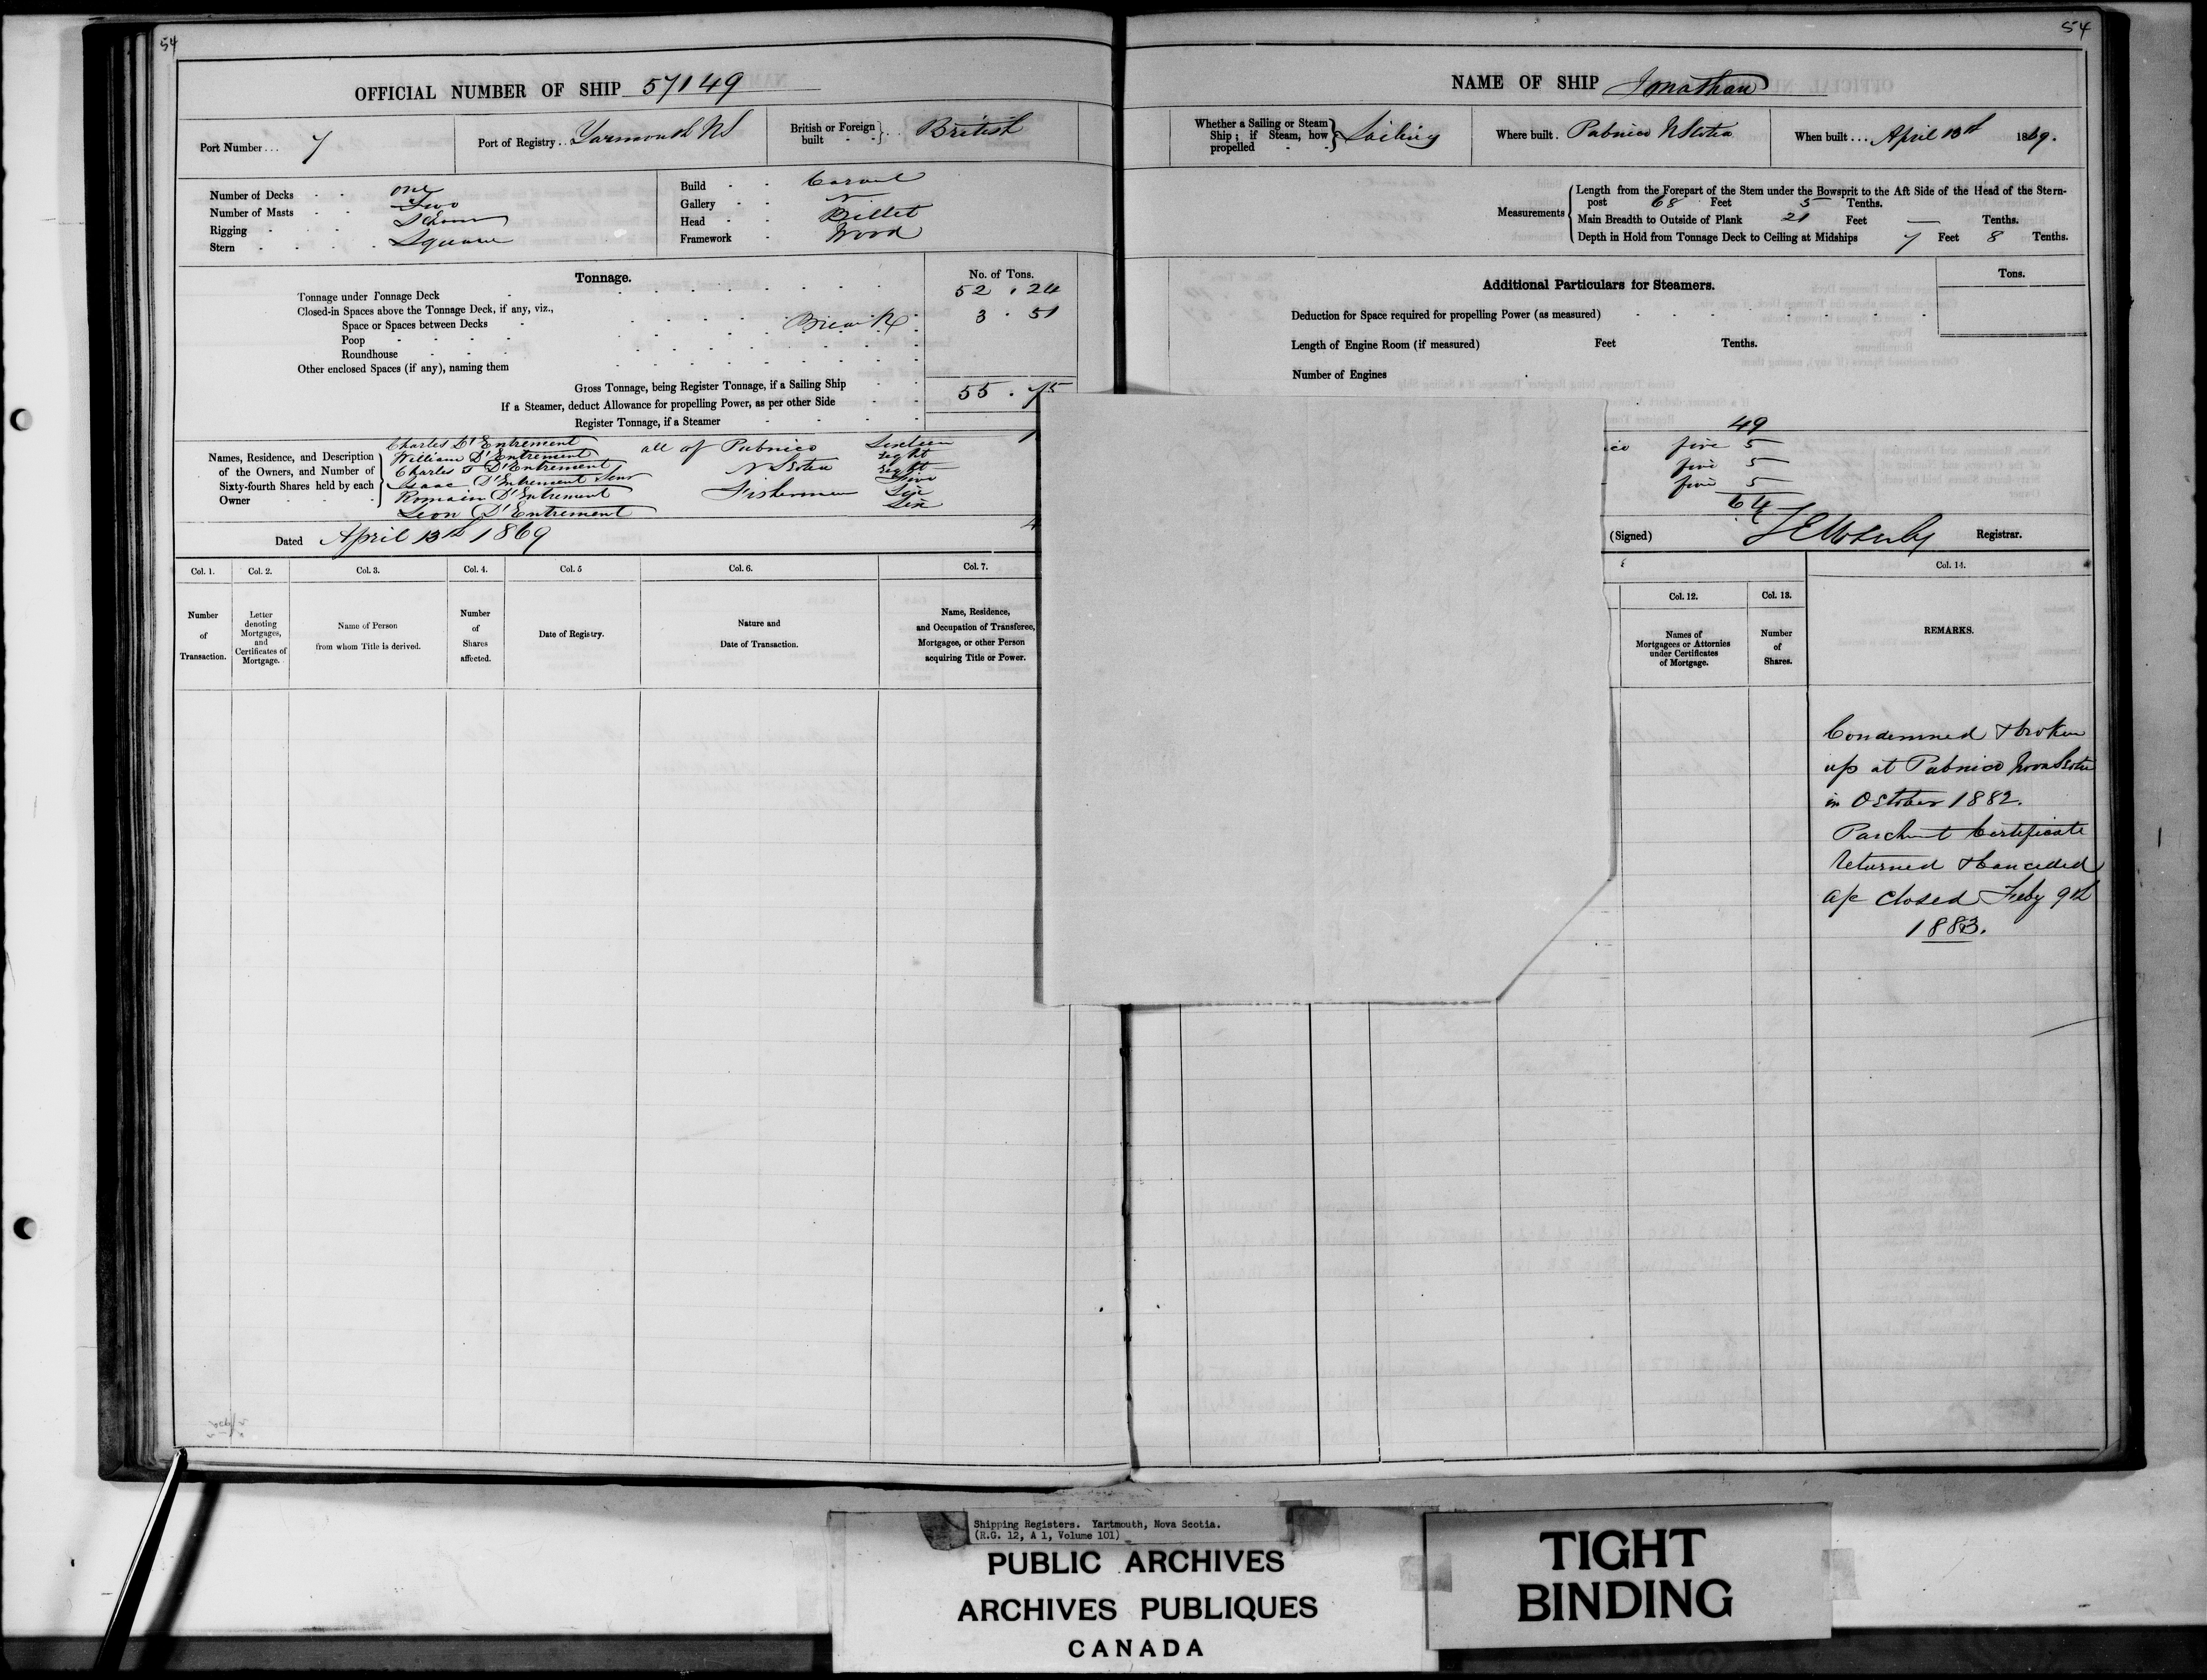 54
OFFICIAL NUMBER OF SHIP 57149
Port Number... 7
Port of Registry.. Yarmouth NS
British or Foreign built } .. British
Number of Decks - - one
Number of Masts - - Two
Rigging - - Schooner
Stern - - Square
Build - - Carvel
Gallery - -
Head - - Billet
Framework - Wood
Tonnage.
No. of Tons.
Tonnage under Tonnage Deck 52 . 24
Closed-in Spaces above the Tonnage Deck, if any, viz.,
Space or Spaces between Decks Break 3 . 51
Poop
Roundhouse
Other enclosed Spaces (if any), naming them
Gross Tonnage, being Register Tonnage, if a Sailing Ship 55 . 75
If a Steamer, deduct Allowance for propelling Power, as per other Side
Register Tonnage, if a Steamer
Names, Residence, and Description of the Owners, and Number of Sixty-fourth Shares held by each Owner
Charles D'Entrement all of Pubnico Sixteen
William D'Entrement eight
Charles T D'Entrement N Scotia eight
Isaac D'Entrement Senr five
Romain D'Entrement Fishermen Six
Leon D'Entrement Six
Dated April 13th 1869
Col. 1.
Col. 2.
Col. 3.
Col. 4.
Col. 5
Col. 6.
Col. 7.
Number of Transaction.
Letter denoting Mortgages, and Certificates of Mortgage.
Name of Person from whom Title is derived.
Number of Shares affected.
Date of Registry.
Nature and Date of Transaction.
Name, Residence, and Occupation of Transferee, Mortgagee, or other Person acquiring Title or Power.
54
NAME OF SHIP Jonathan
Whether a Sailing or Steam Ship; if Steam, how propelled - - } Sailing
Where built . Pubnico N Scotia
When built ... April 13th 1869.
Measurements
Length from the Forepart of the Stem under the Bowsprit to the Aft Side of the Head of the Stern-
post 68 Feet 5 Tenths.
Main Breadth to Outside of Plank 21 Feet — Tenths.
Depth in Hold from Tonnage Deck to Ceiling at Midships 7 Feet 8 Tenths.
Additional Particulars for Steamers.
Tons.
Deduction for Space required for propelling Power (as measured)
Length of Engine Room (if measured) Feet Tenths.
Number of Engines
49
ico five 5
five 5
five 5
64
(Signed) Registrar.
Col. 12.
Col. 13.
Col. 14.
Names of Mortgagees or Attornies under Certificates of Mortgage.
Number of Shares.
REMARKS.
Condemned & broken
up at Pubnico Nova Scotia
in October 1882.
Parchmt Certificate
returned & cancelled
a/c closed Feby 9th
1883.
Shipping Registers. Yartmouth, Nova Scotia.
(R.G. 12, A 1, Volume 101)
PUBLIC ARCHIVES
ARCHIVES PUBLIQUES
CANADA
TIGHT
BINDING